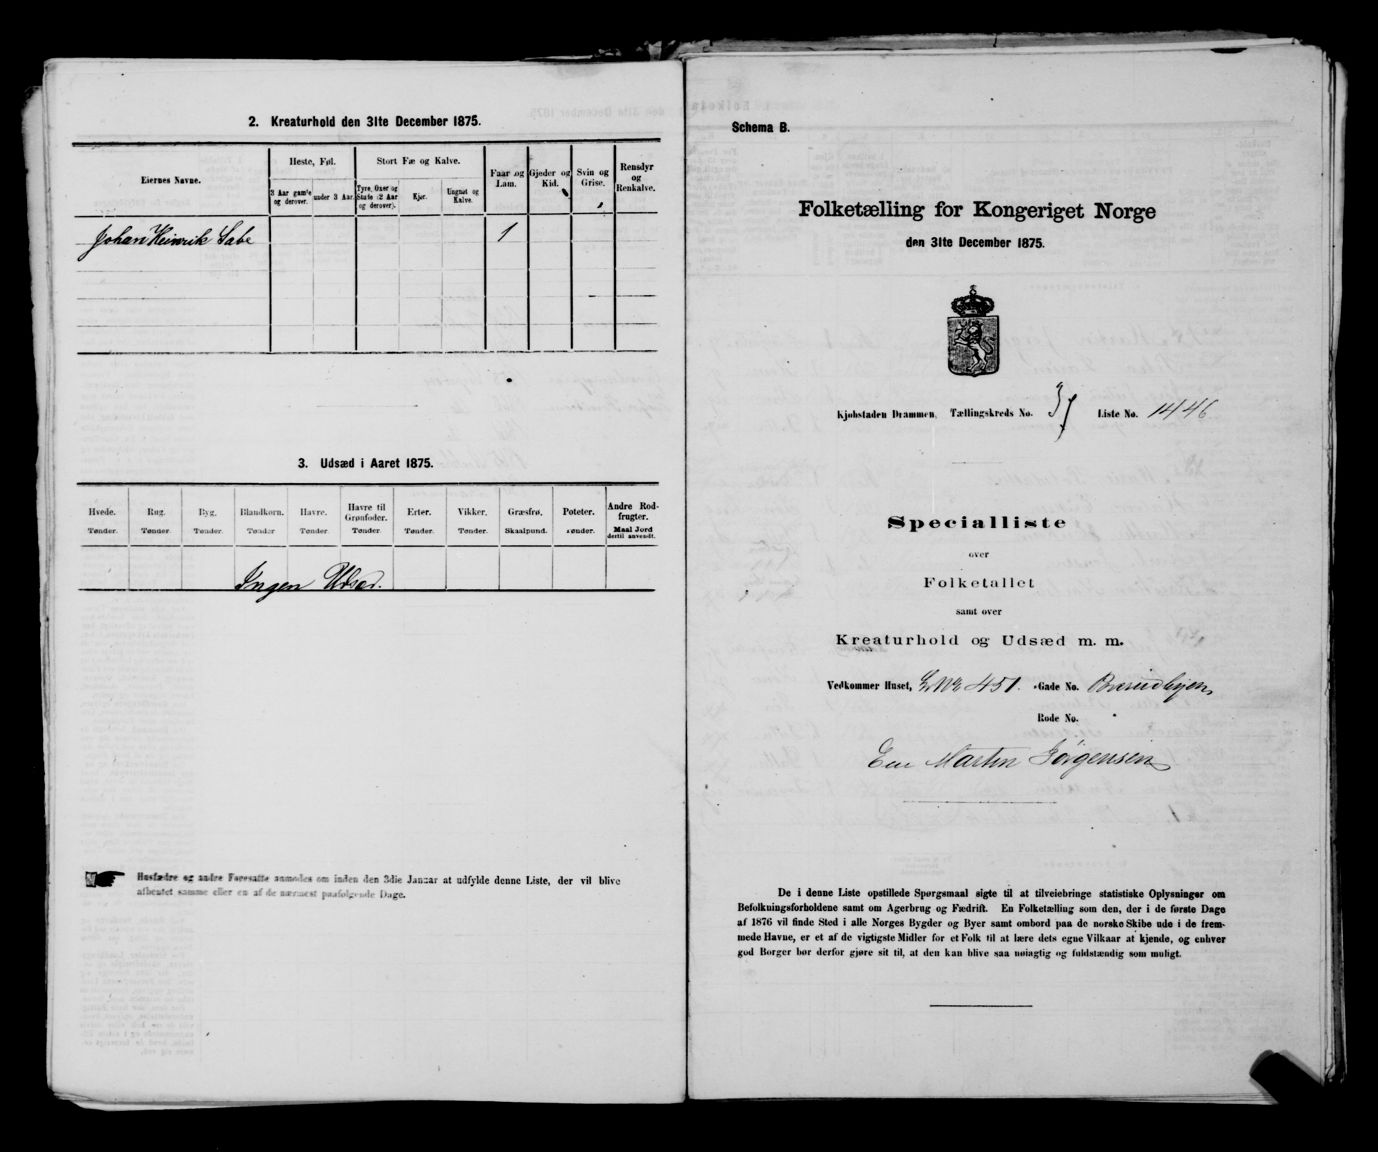 2. Kreaturhold den 31te December 1875.
Eiernes Navne.
Heste, Føl.
Stort Fæ og Kalve.
Faar og Lam.
Gjeder og Kid.
Svin og Grise.
Rensdyr og Renkalve.
3 Aar gamle og derover.
under 3 Aar.
Tyre, Oxer og Stute (2 Aar og derover).
Kjør.
Ungnøt og Kalve.
Johan Heinrik Sabe 1
3. Udsæd i Aaret 1875.
Hvede. Rug. Byg. Blandkorn. Havre. Havre til Grønfoder. Erter. Vikker. Græsfrø. Poteter. Andre Rodfrugter.
Tønder. Tønder. Tønder. Tønder. Tønder. Tønder. Tønder. Tønder. Skaalpund. Tønder. Maal Jord dertil anvendt.
Ingen Udsæd.
Husfædre og andre Foresatte anmodes om inden den 3die Januar at udfylde denne Liste, der vil blive
afhentet samme eller en af de nærmest paafølgende Dage.
Schema B.
Folketælling for Kongeriget Norge
den 31te December 1875.
Kjøbstaden Drammen, Tællingskreds No. Liste No. 1446
Specialliste
over
Folketallet
samt over
Kreaturhold og Udsæd m. m.
Vedkommer Huset, 451. Gade No.
Rode No.
Eier Martin Jørgensen
De i denne Liste opstillede Spørgsmaal sigte til at tilveiebringe statistiske Oplysninger om
Befolkningsforholdene samt om Agerbrug og Fædrift. En Folketælling som den, der i de første Dage
af 1876 vil finde Sted i alle Norges Bygder og Byer samt ombord paa de norske Skibe ude i de frem-
mede Havne, er et af de vigtigste Midler for et Folk til at lære dets egne Vilkaar at kjende, og enhver
god Borger bør derfor gjøre sit til, at den kan blive saa nøiagtig og fuldstændig som muligt.